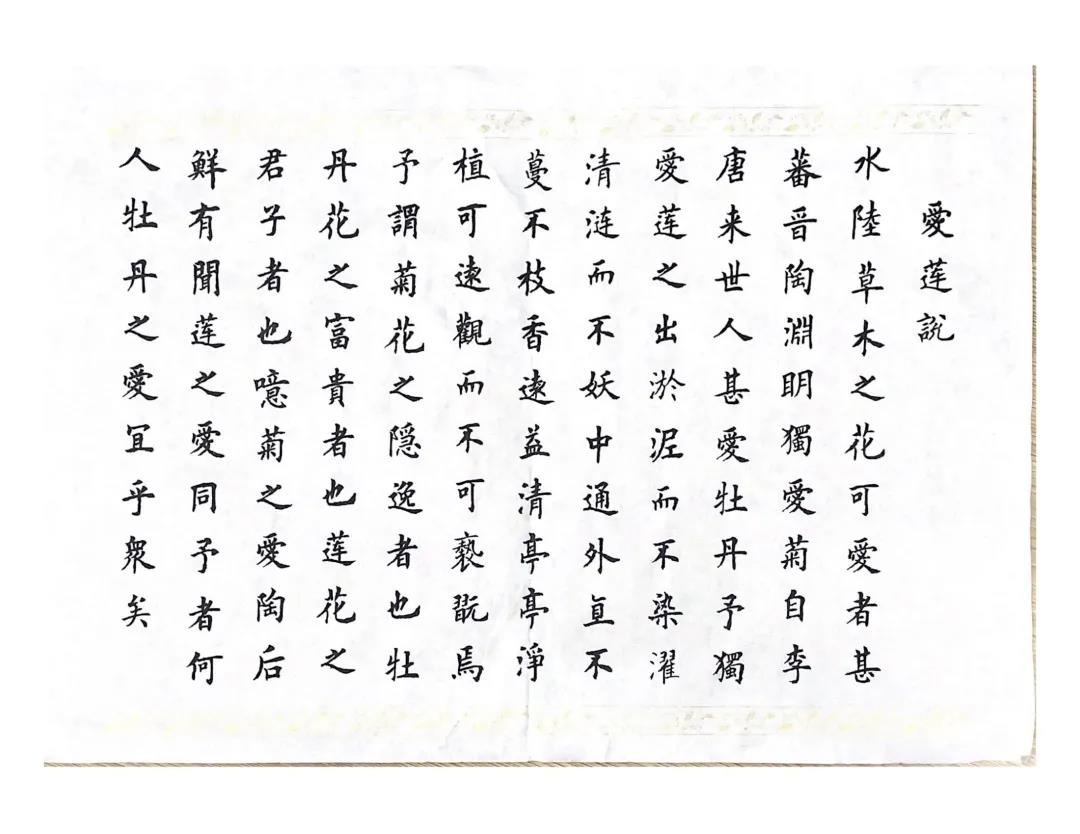 愛莲說
水陸草木之花可愛者甚
蕃晋陶淵明獨愛菊自李
唐来世人甚愛牡丹予獨
愛莲之出淤泥而不染濯
清涟而不妖中通外直不
蔓不枝香遠益清亭亭淨
植可遠觀而不可亵翫焉
予謂菊花之隐逸者也牡
丹花之富貴者也莲花之
君子者也噫菊之愛陶后
鮮有聞莲之愛同予者何
人牡丹之愛宜乎衆矣